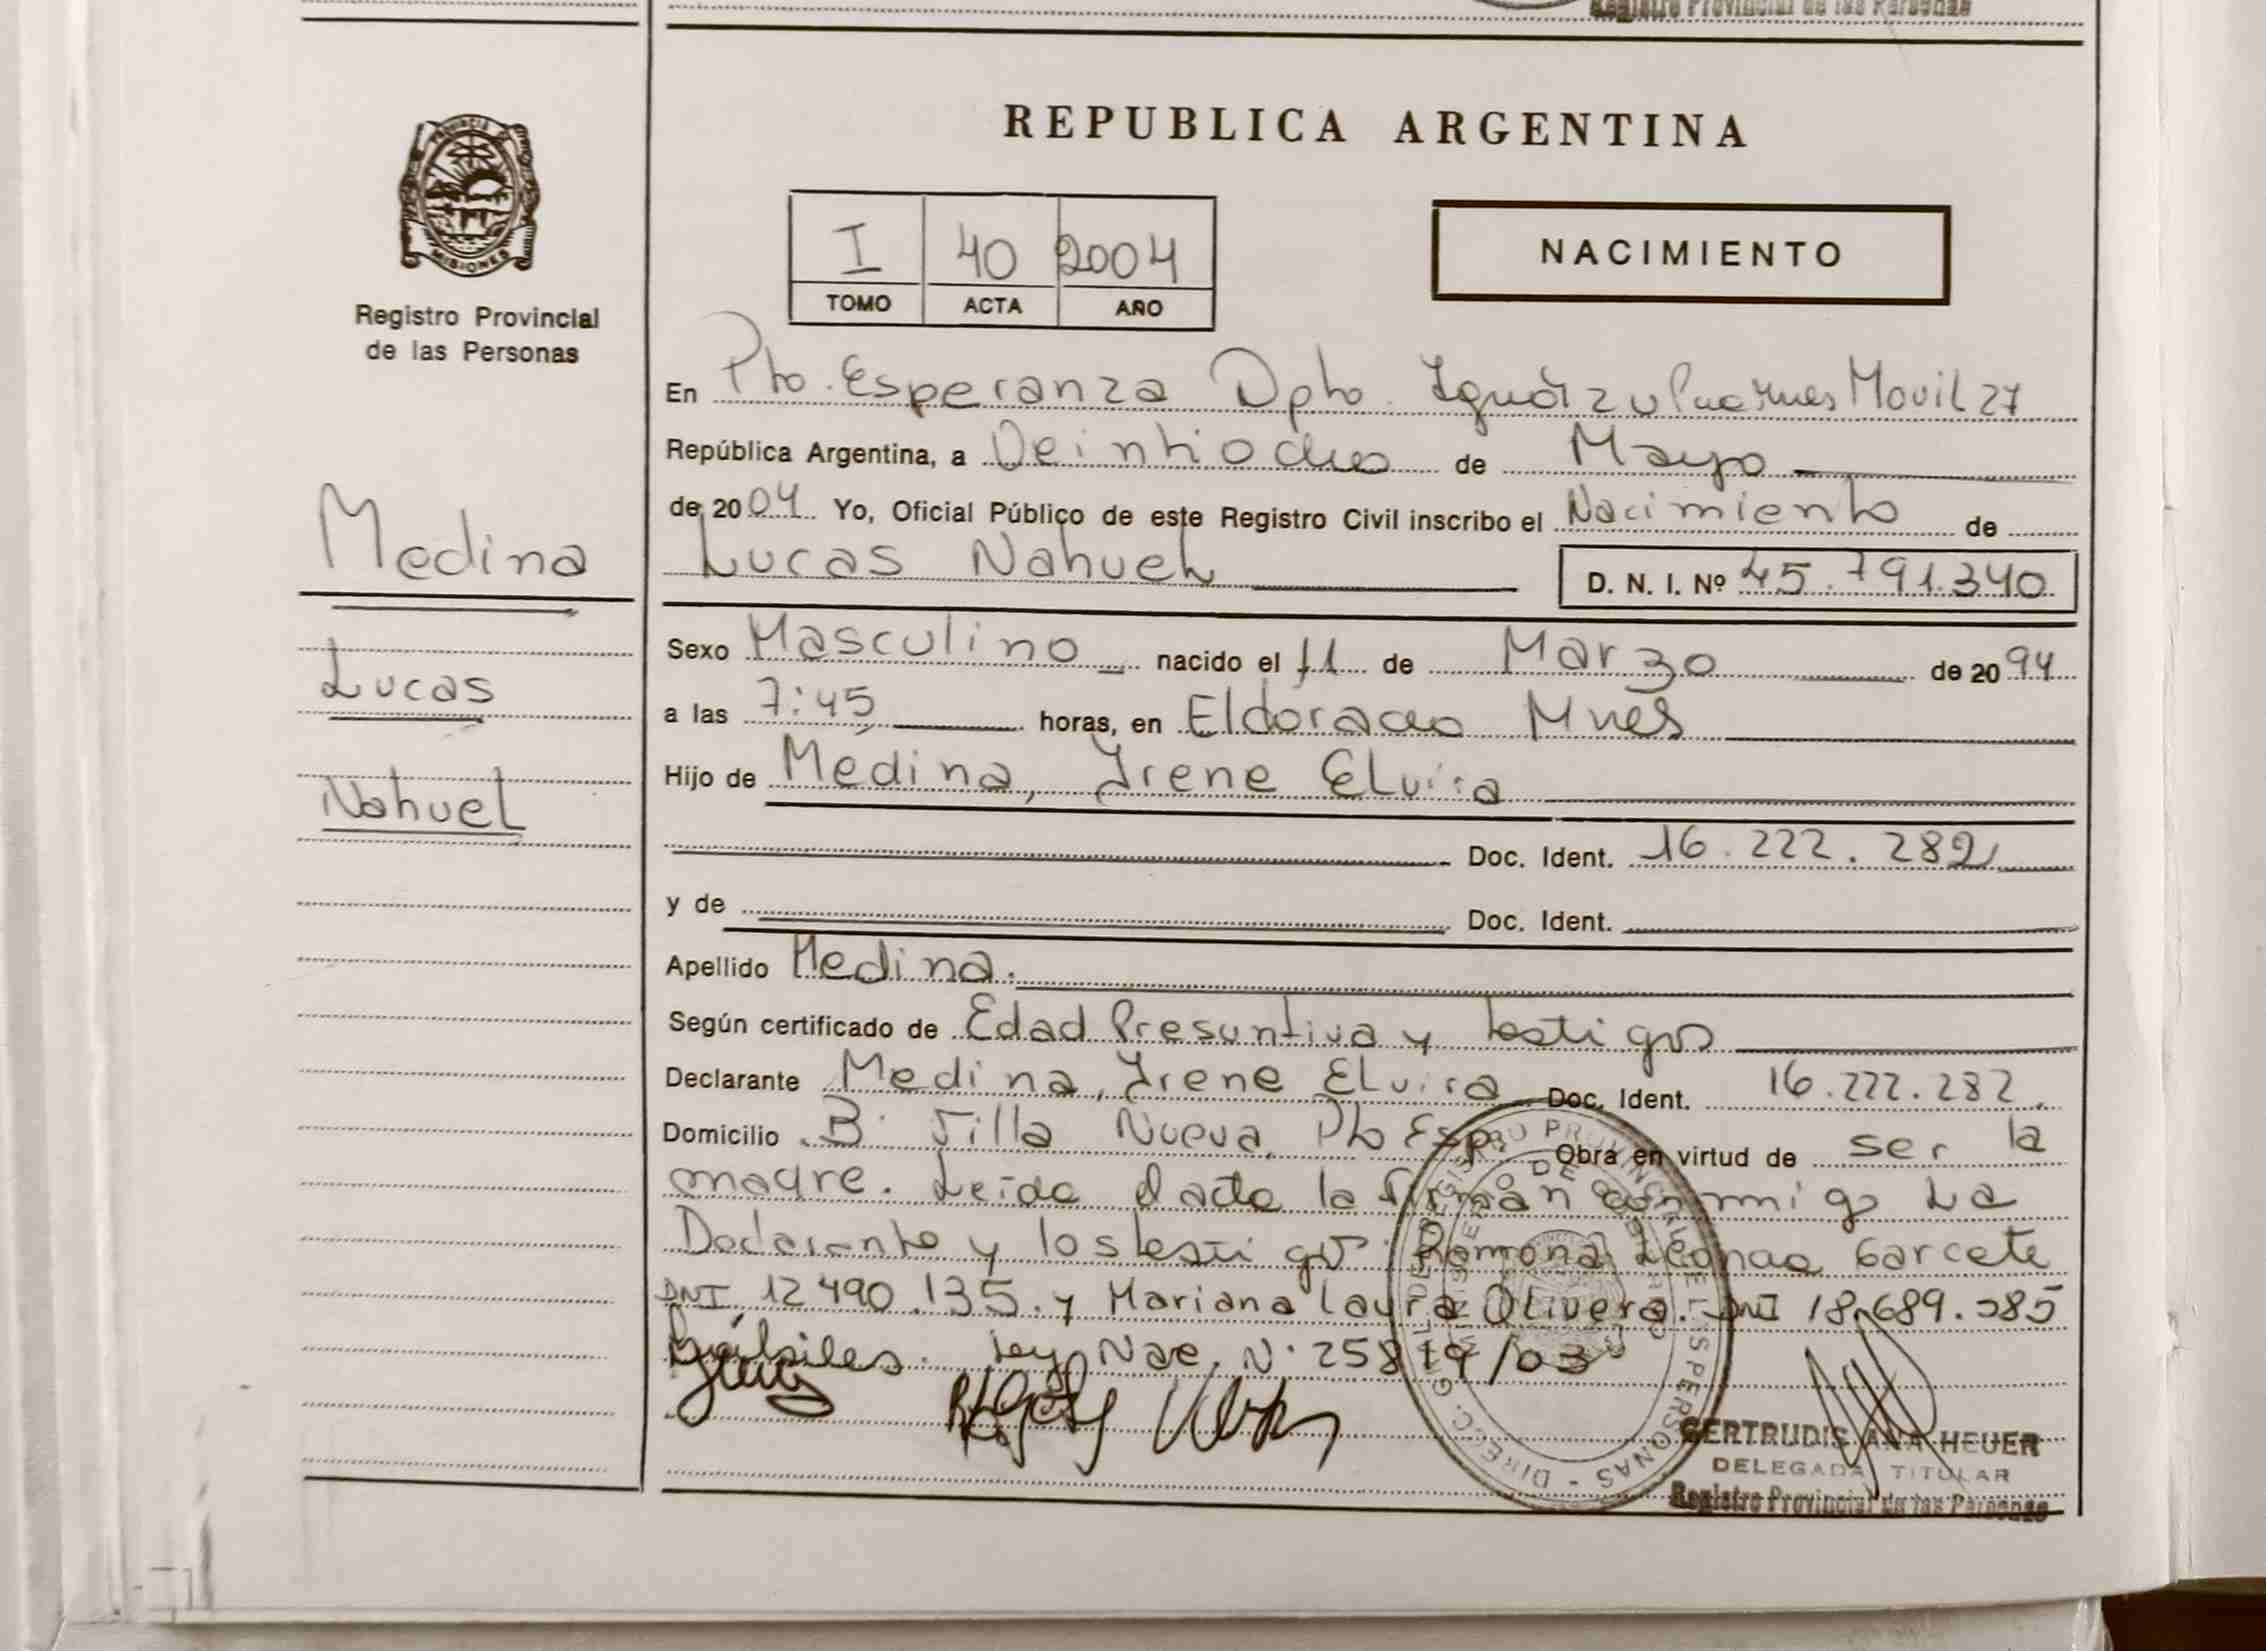 Registro Provincial de las Personas
REPUBLICA ARGENTINA
PROVINCIA DE
MISIONES
Registro Provincial
de las Personas
I 40 2004
TOMO ACTA AÑO
NACIMIENTO
En Pto. Esperanza Dpto. Iguazu Movil 27
República Argentina, a Veintiocho de Mayo
de 2004 Yo, Oficial Público de este Registro Civil inscribo el Nacimiento de
Lucas Nahuel D. N. I. Nº 45.791.340
Medina
Lucas
Nahuel
Sexo Masculino nacido el 11 de Marzo de 2094
a las 7:45 horas, en Eldorado Mnes
Hijo de Medina, Irene Elvira
Doc. Ident. 16.222.282
y de Doc. Ident.
Apellido Medina.
Según certificado de Edad Presuntiva y testigos
Declarante Medina, Irene Elvira Doc. Ident. 16.222.282.
Domicilio B. Villa Nueva, Pto Esp. Obra en virtud de ser la
madre. Leida el acta la firman conmigo La
Declarante y los testigos: Ramona Garcete
DNI 12 490.135. y Mariana Laura Olivera. DNI 18.689.285
Ley Nac. N. 25819/03
GERTRUDIS ANA HEUER
DELEGADA TITULAR
Registro Provincial de las Personas